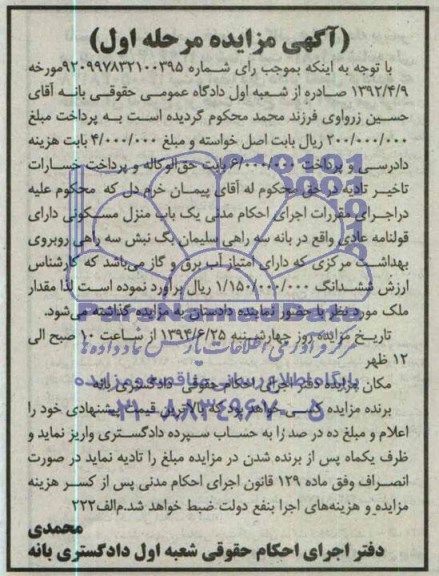 (آگهی مزایده مرحله اول)
با توجه به اینکه بموجب رای شماره ۹۲۰۹۹۷۸۳۲۱۰۰۳۹۵مورخه
۱۳۹۲/۴/۹ صادره از شعبه اول دادگاه عمومی حقوقی بانه آقای
حسین زرواوی فرزند محمد محکوم گردیده است به پرداخت مبلغ
۲۰۰/۰۰۰/۰۰۰ ریال بابت اصل خواسته و مبلغ ۴/۰۰۰/۰۰۰ بابت هزینه
دادرسی و پرداخت ۶/۰۰۰/۰۰۰ بابت حق‌الوکاله و پرداخت خسارات
تاخیر تادیه در حق محکوم له آقای پیمان خرم دل که محکوم علیه
دراجرای مقررات اجرای احکام مدنی یک باب منزل مسکونی دارای
قولنامه عادی واقع در بانه سه راهی سلیمان بگ نبش سه راهی روبروی
بهداشت مرکزی که دارای امتیاز آب برق و گاز می‌باشد که کارشناس
ارزش ششدانگ ۱/۱۵۰/۰۰۰/۰۰۰ ریال برآورد نموده است لذا مقدار
ملک مورد نظر با حضور نماینده دادستان به مزایده گذاشته می‌شود.
تاریخ مزایده روز چهارشنبه ۱۳۹۴/۶/۲۵ از ساعت ۱۰ صبح الی
۱۲ ظهر
مکان مزایده دفتر اجرای احکام حقوقی دادگستری بانه
برنده مزایده کسی خواهد بود که بالاترین قیمت پیشنهادی خود را
اعلام و مبلغ ده در صد را به حساب سپرده دادگستری واریز نماید و
ظرف یکماه پس از برنده شدن در مزایده مبلغ را تادیه نماید در صورت
انصراف وفق ماده ۱۲۹ قانون اجرای احکام مدنی پس از کسر هزینه
مزایده و هزینه‌های اجرا بنفع دولت ضبط خواهد شد.م‌الف۲۲۲
محمدی
دفتر اجرای احکام حقوقی شعبه اول دادگستری بانه
ParsNamadData
مرکز فرآوری اطلاعات پارس نماد داده ها
پایگاه اطلاع رسانی مناقصه و مزایده
۰۲۱-۸۸۳۴۹۶۷۰-۵